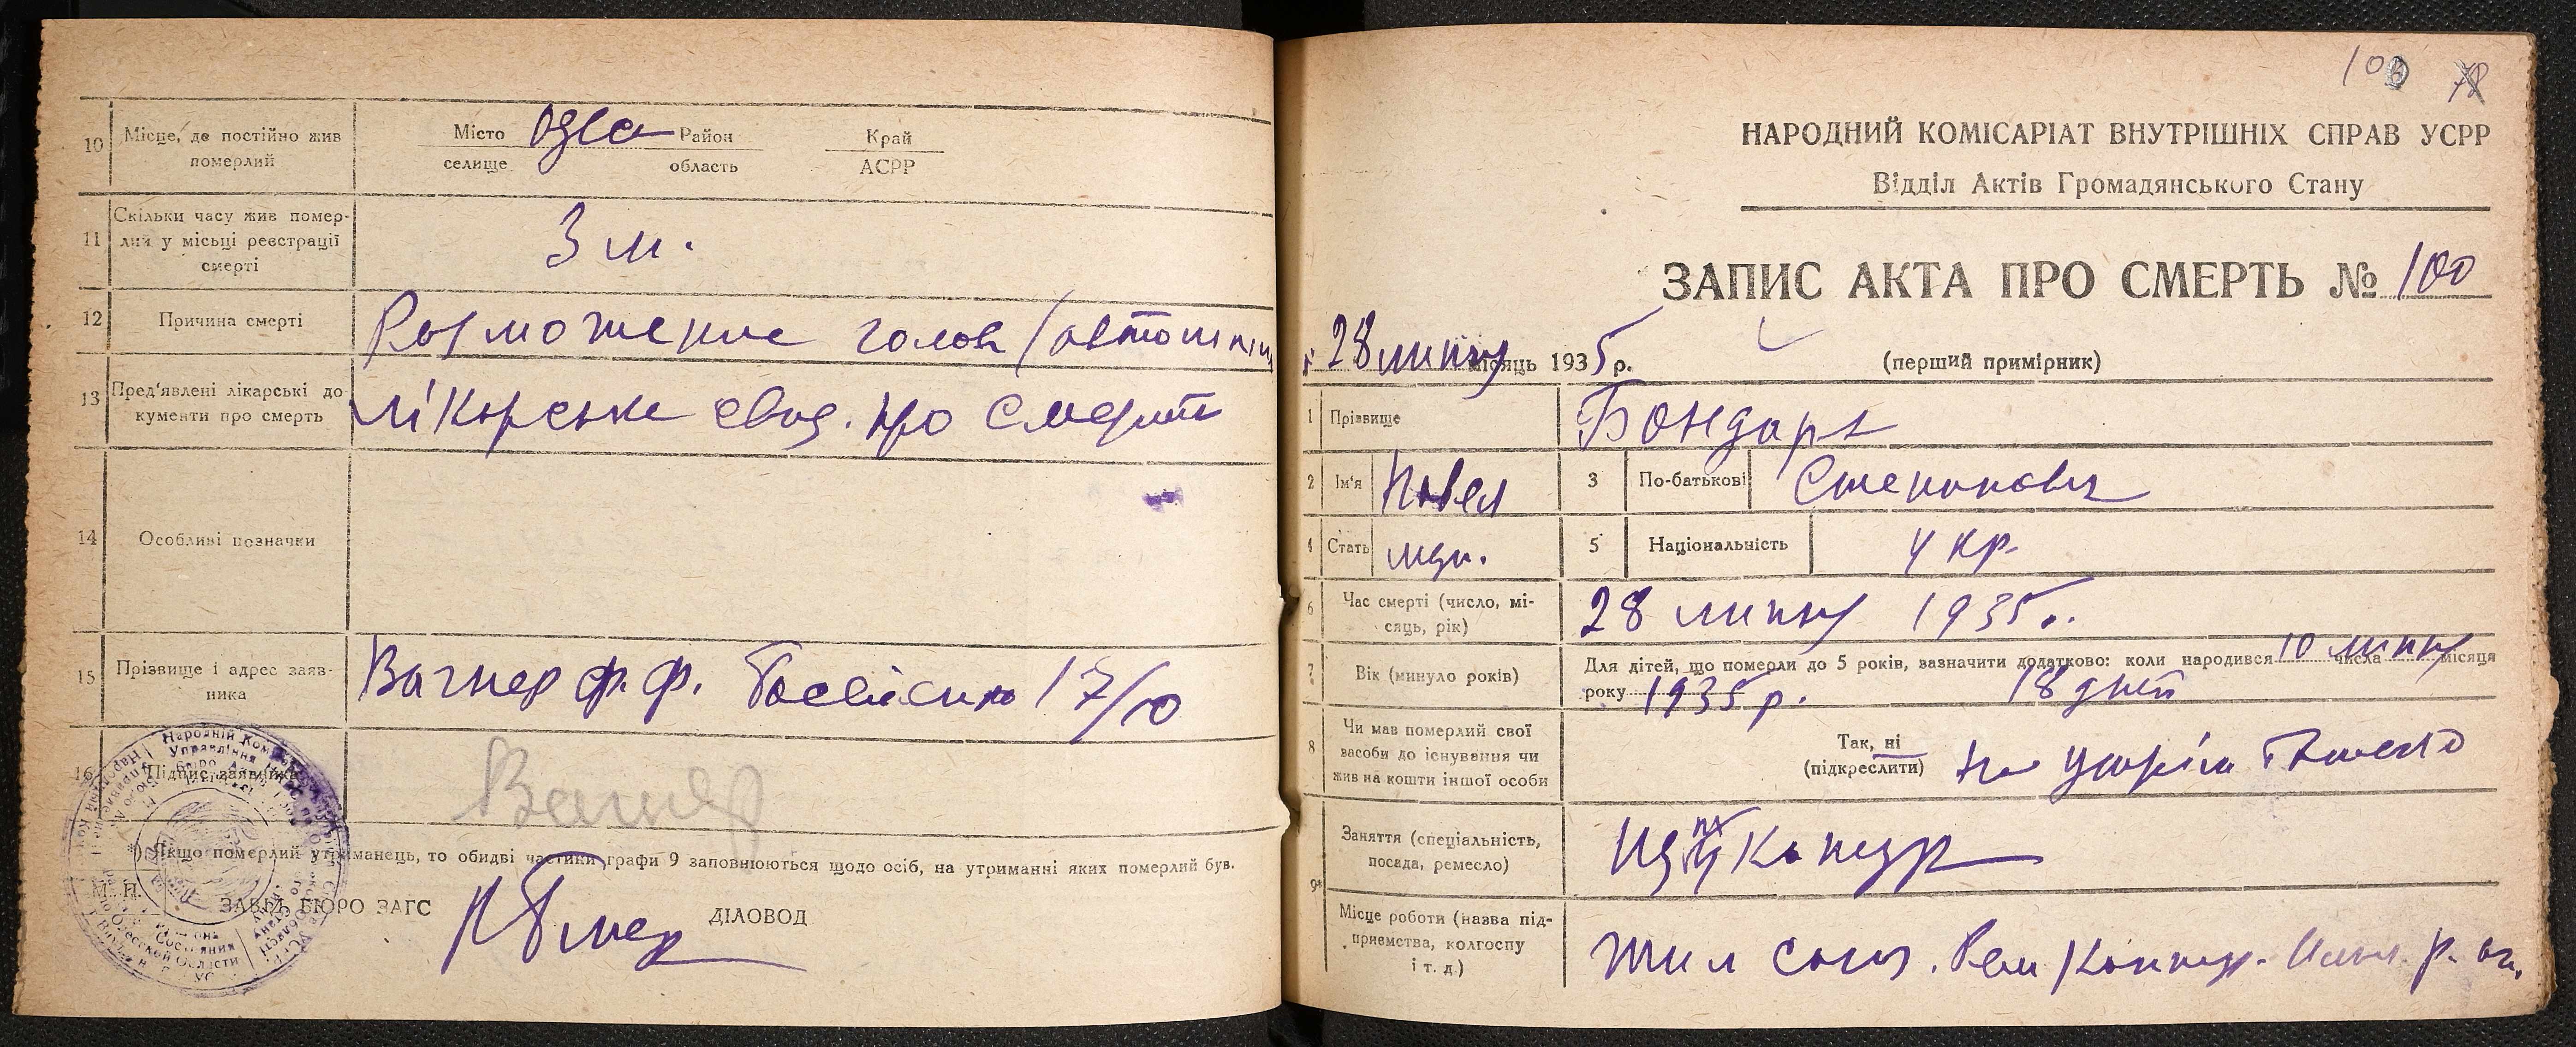 10 Місце, де постійно жив
померлий
Місто Одеса Район Край
селище область АСРР
11 Скільки часу жив помер-
лий у місьці реєстрації
смерті
3 м.
12 Причина смерті
Розможение голов
13 Пред'явлені лікарські до-
кументи про смерть
лікарське свід. про смерть
14 Особливі позначки
15 Прізвище і адрес заяв-
ника
Вагнер Ф.Ф. 17/10
16 Підпис заявника
Вагнер
*) Якщо померлий утриманець, то обидві частини графи 9 заповнюються щодо осіб, на утриманні яких померлий був.
М. П.
ЗАВІД. БЮРО ЗАГС ДІЛОВОД
100
НАРОДНИЙ КОМІСАРІАТ ВНУТРІШНІХ СПРАВ УСРР
Відділ Актів Громадянського Стану
ЗАПИС АКТА ПРО СМЕРТЬ № 100
28 липня місяць 1935 р. (перший примірник)
1 Прізвище Бондарь
2 Ім'я Павел 3 По-батькові Степанович
4 Стать муж. 5 Національність укр.
6 Час смерті (число, мі-
сяць, рік)
28 липня 1935 р.
7 Вік (минуло років)
Для дітей, що померли до 5 років, зазначити додатково: коли народився 10 числа липня місяця
року 1935 р. 18 дней
8 Чи мав померлий свої
засоби до існування чи
жив на кошти іншої особи
Так, ні
(підкреслити)
9* Заняття (спеціальність,
посада, ремесло)
Місце роботи (назва під-
приємства, колгоспу
і т. д.)